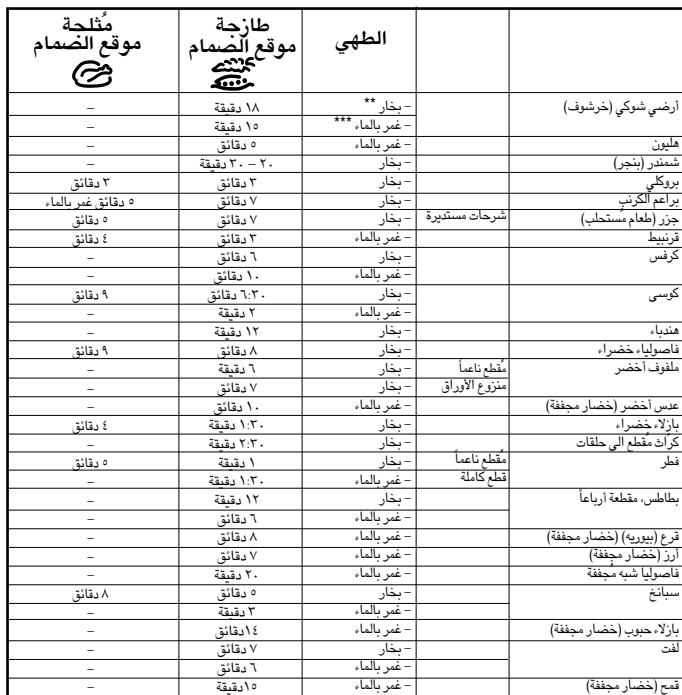 الطهي طازجة موقع الضمام مُثلجة موقع الضمام
أرضي شوكي (خرشوف) – بخار ** ١٨ دقيقة –
– غمر بالماء *** ١٥ دقيقة –
هليون – غمر بالماء ٥ دقائق –
شمندر (بنجر) – بخار ٢٠ – ٣٠ دقيقة –
بروكلي – بخار ٣ دقائق ٣ دقائق
براعم الكرنب – بخار ٧ دقائق ٥ دقائق غمر بالماء
جزر (طعام مُستحلب) شرحات مستديرة – بخار ٧ دقائق ٥ دقائق
قرنبيط – غمر بالماء ٣ دقائق ٤ دقائق
كرفس – بخار ٦ دقائق –
– غمر بالماء ١٠ دقائق –
كوسى – بخار ٦:٣٠ دقائق ٩ دقائق
– غمر بالماء ٢ دقيقة –
هندباء – بخار ١٢ دقيقة –
فاصولياء خضراء – بخار ٨ دقائق ٩ دقائق
ملفوف أخضر مُقطع ناعماً – بخار ٦ دقيقة –
منزوع الأوراق – بخار ٧ دقائق –
عدس أخضر (خضار مجففة) – غمر بالماء ١٠ دقائق –
بازلاء خضراء – بخار ١:٣٠ دقيقة ٤ دقائق
كراث مُقطع الى حلقات – بخار ٢:٣٠ دقيقة –
فطر مُقطع ناعماً – بخار ١ دقيقة ٥ دقائق
قطع كاملة – غمر بالماء ١:٣٠ دقيقة –
بطاطس، مقطعة أرباعاً – بخار ١٢ دقيقة –
– غمر بالماء ٦ دقائق –
قرع (بيوريه) (خضار مجففة) – غمر بالماء ٨ دقائق –
أرز (خضار مجففة) – غمر بالماء ٧ دقائق –
فاصوليا شبه مُجففة – غمر بالماء ٢٠ دقيقة –
سبانخ – بخار ٥ دقائق ٨ دقائق
– غمر بالماء ٣ دقيقة –
بازلاء حبوب (خضار مجففة) – غمر بالماء ١٤دقائق –
لفت – بخار ٧ دقائق –
– غمر بالماء ٦ دقائق –
قمح (خضار مجففة) – غمر بالماء ١٥دقيقة –